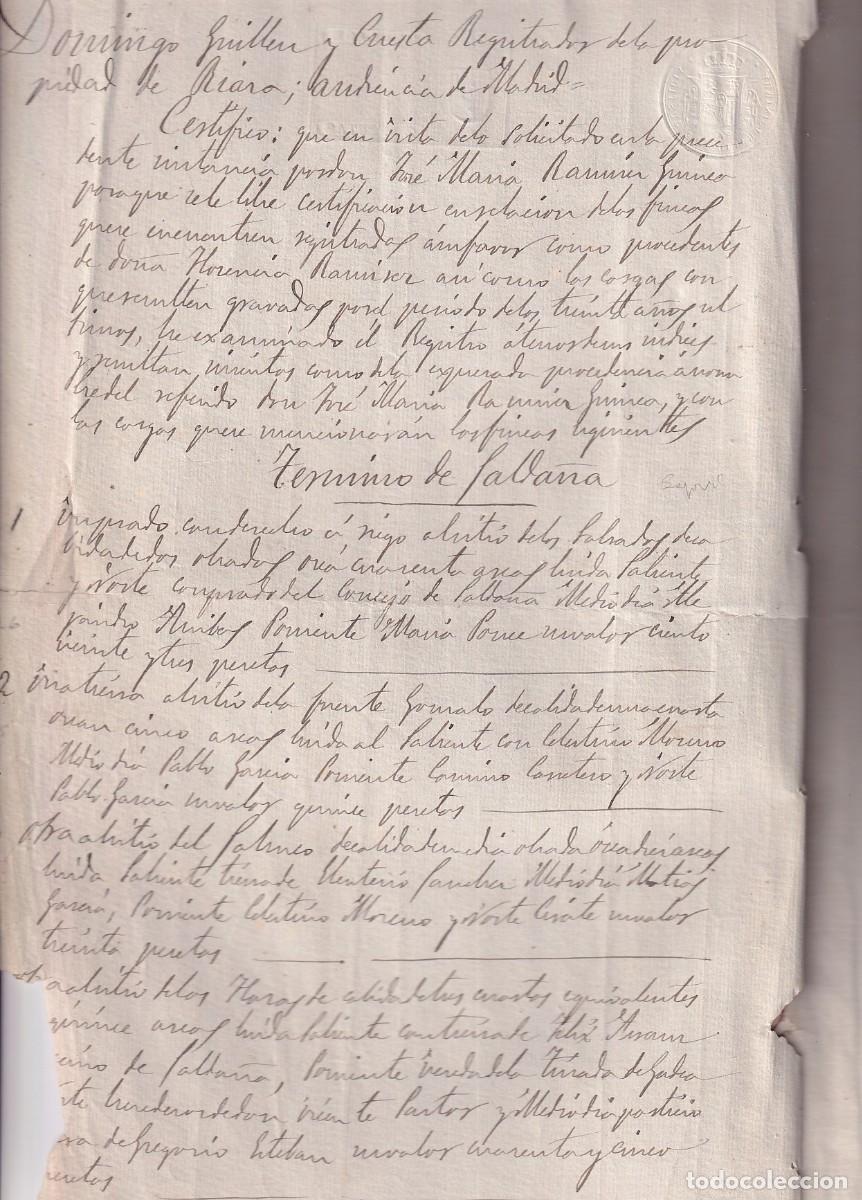 Domingo Guillen y Cuesta Registrador de la pro-
piedad de Riaza; audiencia de Madrid=
Certifico: que en vista delo solicitado en la prece-
dente instancia por don José Maria Ramirez Guinea
para que sele libre certificacion en relacion delas fincas
que se encuentren registradas á su favor como procedentes
de doña Florencia Ramirez asi como las cargas con
que resulten gravadas por el periodo delos treinta años ul
timos, he examinado el Registro á tenor de sus indices
y resultan inscritas como dela expresada procedencia á nom
bre del referido don José Maria Ramirez Guinea, y con
las cargas que se mencionarán las fincas siguientes
Termino de Saldaña
1 Un prado con derecho á riego al sitio delos Salvados de ca
bida de dos obradas ó sea cuarenta areas linda Saliente
y Norte con prado del Concejo de Saldaña Mediodia Ale
jandro Arribas Poniente Maria Ponce su valor ciento
veinte y tres pesetas
2 Una tierra al sitio dela fuente Gonzalo de calidad una cuarta
ó sean cinco areas linda al Saliente con Celestino Moreno
Mediodia Pablo Garcia Poniente Camino Carretero y Norte
Pablo Garcia su valor quince pesetas
otra al sitio del de calidad media obrada ó sea diez areas
linda Saliente tierra de Sanchez Mediodia Matias
Garcia, Poniente Celestino Moreno y Norte su valor
treinta pesetas
otra al sitio delas de calidad de tres cuartas equivalentes
quince areas linda Saliente con tierra de Felix
de Saldaña, Poniente Vereda dela de
herederos de don Vicente Pastor y Mediodia
de Gregorio Esteban su valor cuarenta y cinco
pesetas
todocoleccion